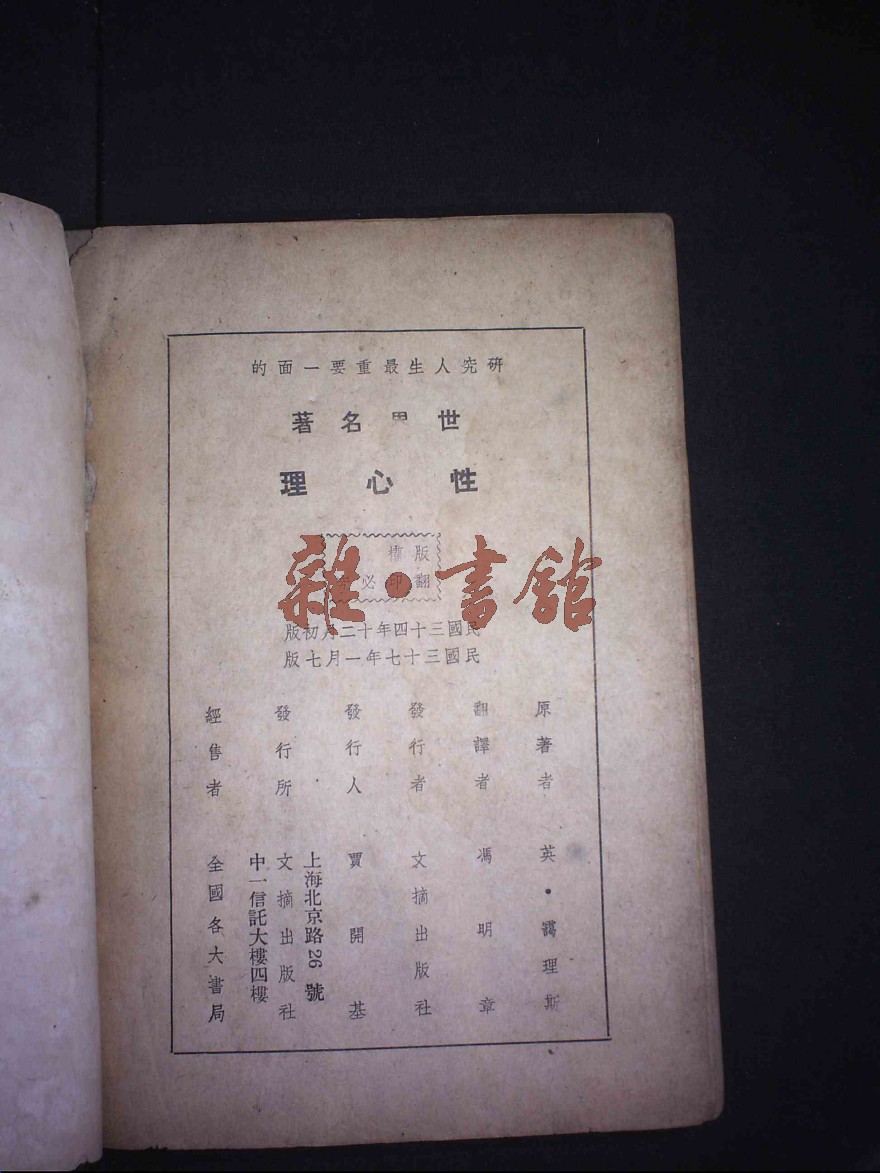 研究人生最重要一面的
世界名著
性心理
版權
翻印必
民國三十四年十二月初版
民國三十七年一月七版
原著者 英·靄理斯
翻譯者 馮明章
發行者 文摘出版社
發行人 賈開基
發行所 文摘出版社
上海北京路26號
中一信託大樓四樓
經售者 全國各大書局
雜·書館